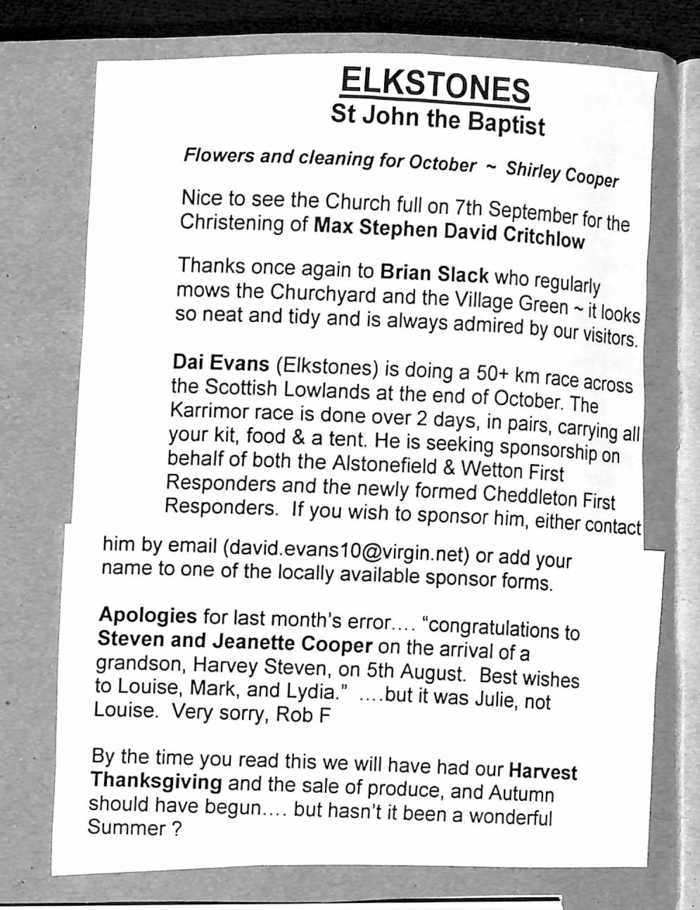 ELKSTONES
St John the Baptist
Flowers and cleaning for October ~ Shirley Cooper
Nice to see the Church full on 7th September for the
Christening of Max Stephen David Critchlow
Thanks once again to Brian Slack who regularly
mows the Churchyard and the Village Green ~ it looks
so neat and tidy and is always admired by our visitors.
Dai Evans (Elkstones) is doing a 50+ km race across
the Scottish Lowlands at the end of October. The
Karrimor race is done over 2 days, in pairs, carrying all
your kit, food & a tent. He is seeking sponsorship on
behalf of both the Alstonefield & Wetton First
Responders and the newly formed Cheddleton First
Responders. If you wish to sponsor him, either contact
him by email (david.evans10@virgin.net) or add your
name to one of the locally available sponsor forms.
Apologies for last month's error.... "congratulations to
Steven and Jeanette Cooper on the arrival of a
grandson, Harvey Steven, on 5th August. Best wishes
to Louise, Mark, and Lydia." ....but it was Julie, not
Louise. Very sorry, Rob F
By the time you read this we will have had our Harvest
Thanksgiving and the sale of produce, and Autumn
should have begun.... but hasn't it been a wonderful
Summer ?